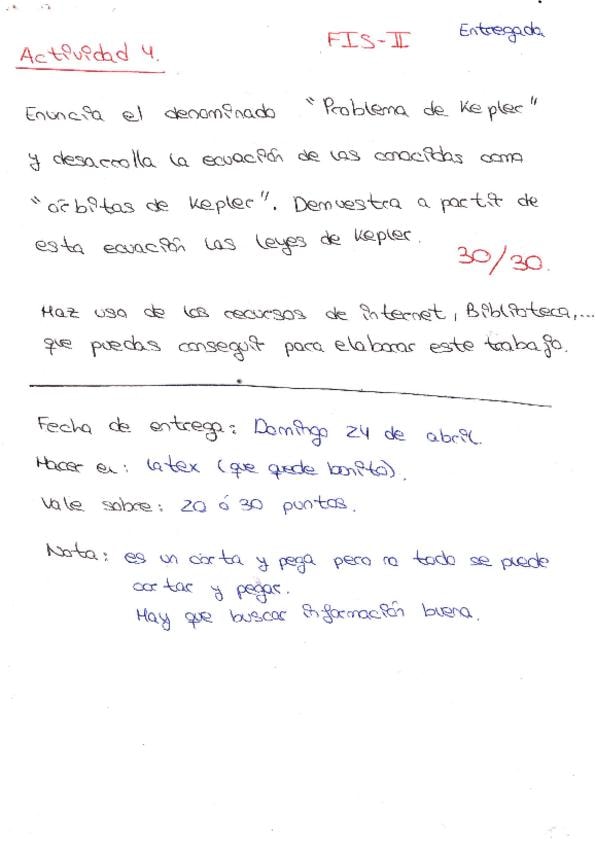 Entregada
FIS-II
Actividad 4.
Enuncia el denominado "Problema de Kepler"
y desarrolla la ecuación de las conocidas como
"órbitas de Kepler". Demuestra a partir de
esta ecuación las leyes de Kepler.
30/30.
Haz uso de los recursos de internet, Biblioteca,...
que puedas conseguir para elaborar este trabajo.
Fecha de entrega: Domingo 24 de abril.
Hacer en: latex (que quede bonito).
Vale sobre: 20 ó 30 puntos.
Nota: es un corta y pega pero no todo se puede
cortar y pegar.
Hay que buscar información buena.